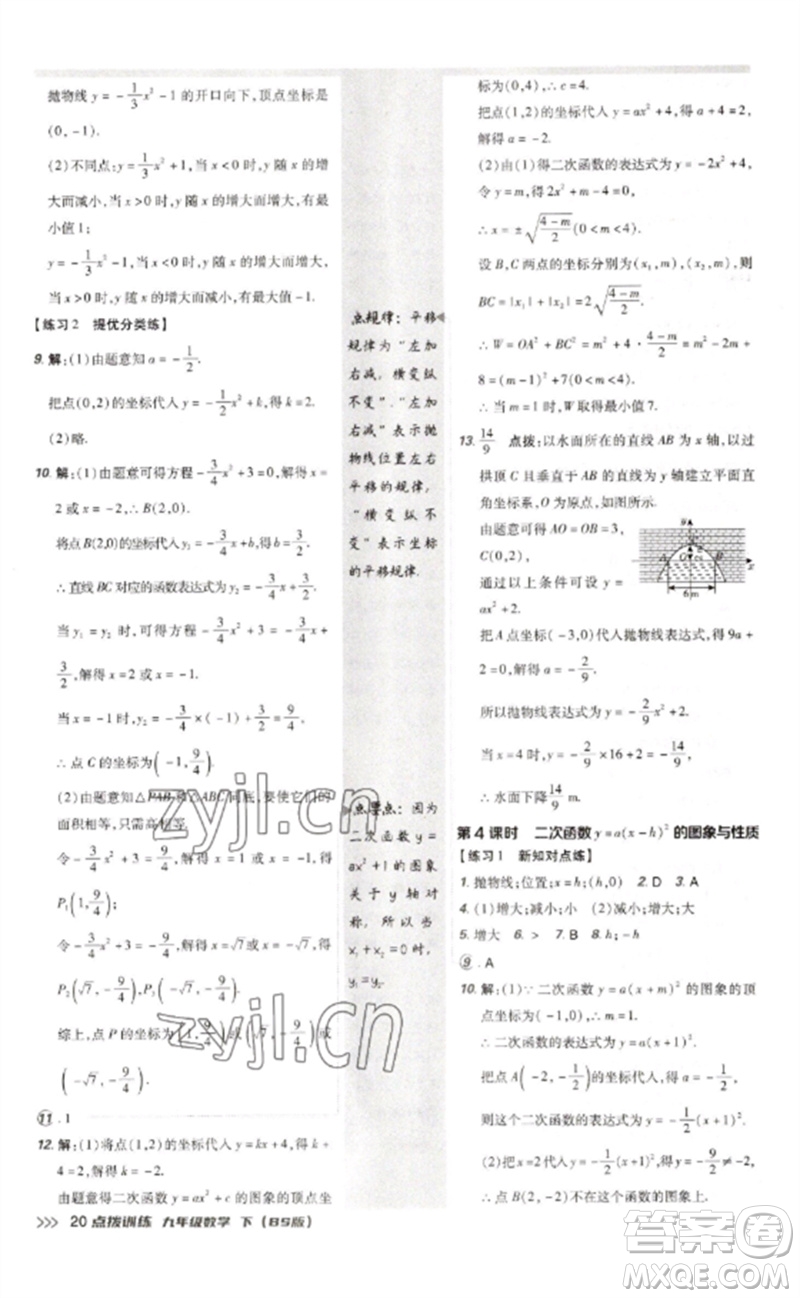 抛物线 y = -1/3x² - 1 的开口向下,顶点坐标是
(0, -1).
(2)不同点:y = 1/3x² + 1,当 x < 0 时,y 随 x 的增
大而减小,当 x > 0 时,y 随 x 的增大而增大,有最
小值 1;
y = -1/3x² - 1,当 x < 0 时,y 随 x 的增大而增大,
当 x > 0 时,y 随 x 的增大而减小,有最大值 -1.
【练习2 提优分类练】
9. 解:(1)由题意知 a = -1/2.
把点(0,2)的坐标代入,得 k = 2.
(2)略.
10. 解:(1)由题意可得方程 -3/4x² + 3 = 0,解得 x =
2 或 x = -2,∴ B(2,0).
将点 B(2,0)的坐标代入 y₂ = -3/4x + b,得 b = 3/2.
∴ 直线 BC 对应的函数表达式为 y₂ = -3/4x + 3/2.
当 y₁ = y₂ 时,可得方程 -3/4x² + 3 = -3/4x +
3/2,解得 x = 2 或 x = -1.
当 x = -1 时,y₂ = -3/4 × (-1) + 3/2 = 9/4.
∴ 点 C 的坐标为(-1, 9/4).
(2)由题意知△PAB 和△ABC 同底,要使它们的
面积相等,只需高相等.
令 -3/4x² + 3 = 9/4,解得 x = 1 或 x = -1(舍去),得
P₁(1, 9/4);
令 -3/4x² + 3 = -9/4,解得 x = √7 或 x = -√7,得
P₂(√7, -9/4),P₃(-√7, -9/4).
综上,点 P 的坐标为(1, 9/4)或(√7, -9/4)或
(-√7, -9/4).
11. 1
12. 解:(1)将点(1,2)的坐标代入 y = kx + 4,得 k +
4 = 2,解得 k = -2.
由题意得二次函数 y = ax² + c 的图象的顶点坐
>>> 20 点拨训练 九年级数学 下(BS版)
点规律:平移
规律为“左加
右减,横变纵
不变”.“左加
右减”表示抛
物线位置左右
平移的规律,
“横变纵不
变”表示坐标
的平移规律.
点要点:因为
二次函数 y =
ax² + 1 的图象
关于 y 轴对
称,所以当
x₁ + x₂ = 0 时,
y₁ = y₂.
标为(0,4),∴ c = 4.
把点(1,2)的坐标代入 y = ax² + 4,得 a + 4 = 2,
解得 a = -2.
(2)由(1)得二次函数的表达式为 y = -2x² + 4,
令 y = m,得 2x² + m - 4 = 0,
∴ x = ±√((4-m)/2)(0 < m < 4).
设 B,C 两点的坐标分别为(x₁,m),(x₂,m),则
BC = |x₁| + |x₂| = 2√((4-m)/2).
∴ W = OA² + BC² = m² + 4·(4-m)/2 = m² - 2m +
8 = (m-1)² + 7(0 < m < 4).
∴ 当 m = 1 时,W 取得最小值 7.
13. 14/9 点拨:以水面所在的直线 AB 为 x 轴,以过
拱顶 C 且垂直于 AB 的直线为 y 轴建立平面直
角坐标系,O 为原点,如图所示.
由题意可得 AO = OB = 3,
C(0,2),
通过以上条件可设 y =
ax² + 2.
y
C
A
O
B
x
6 m
把 A 点坐标(-3,0)代入抛物线表达式,得 9a +
2 = 0,解得 a = -2/9.
所以抛物线表达式为 y = -2/9x² + 2.
当 x = 4 时,y = -2/9 × 16 + 2 = -14/9,
∴ 水面下降 14/9 m.
第4课时 二次函数 y = a(x - h)² 的图象与性质
【练习1 新知对点练】
1. 抛物线;位置;x = h;(h,0) 2. D 3. A
4. (1)增大;减小;小 (2)减小;增大;大
5. 增大 6. > 7. B 8. h;-h
9. A
10. 解:(1)∵ 二次函数 y = a(x + m)² 的图象的顶
点坐标为(-1,0),∴ m = 1.
∴ 二次函数的表达式为 y = a(x + 1)².
把点 A(-2, -1/2)的坐标代入,得 a = -1/2,
则这个二次函数的表达式为 y = -1/2(x + 1)².
(2)把二次函数 y = -1/2x² 的图象向左平移 1 个
单位长度得到这个二次函数的图象.
zyjl.cn
zyjl.cn
答案圈
MXQE.COM